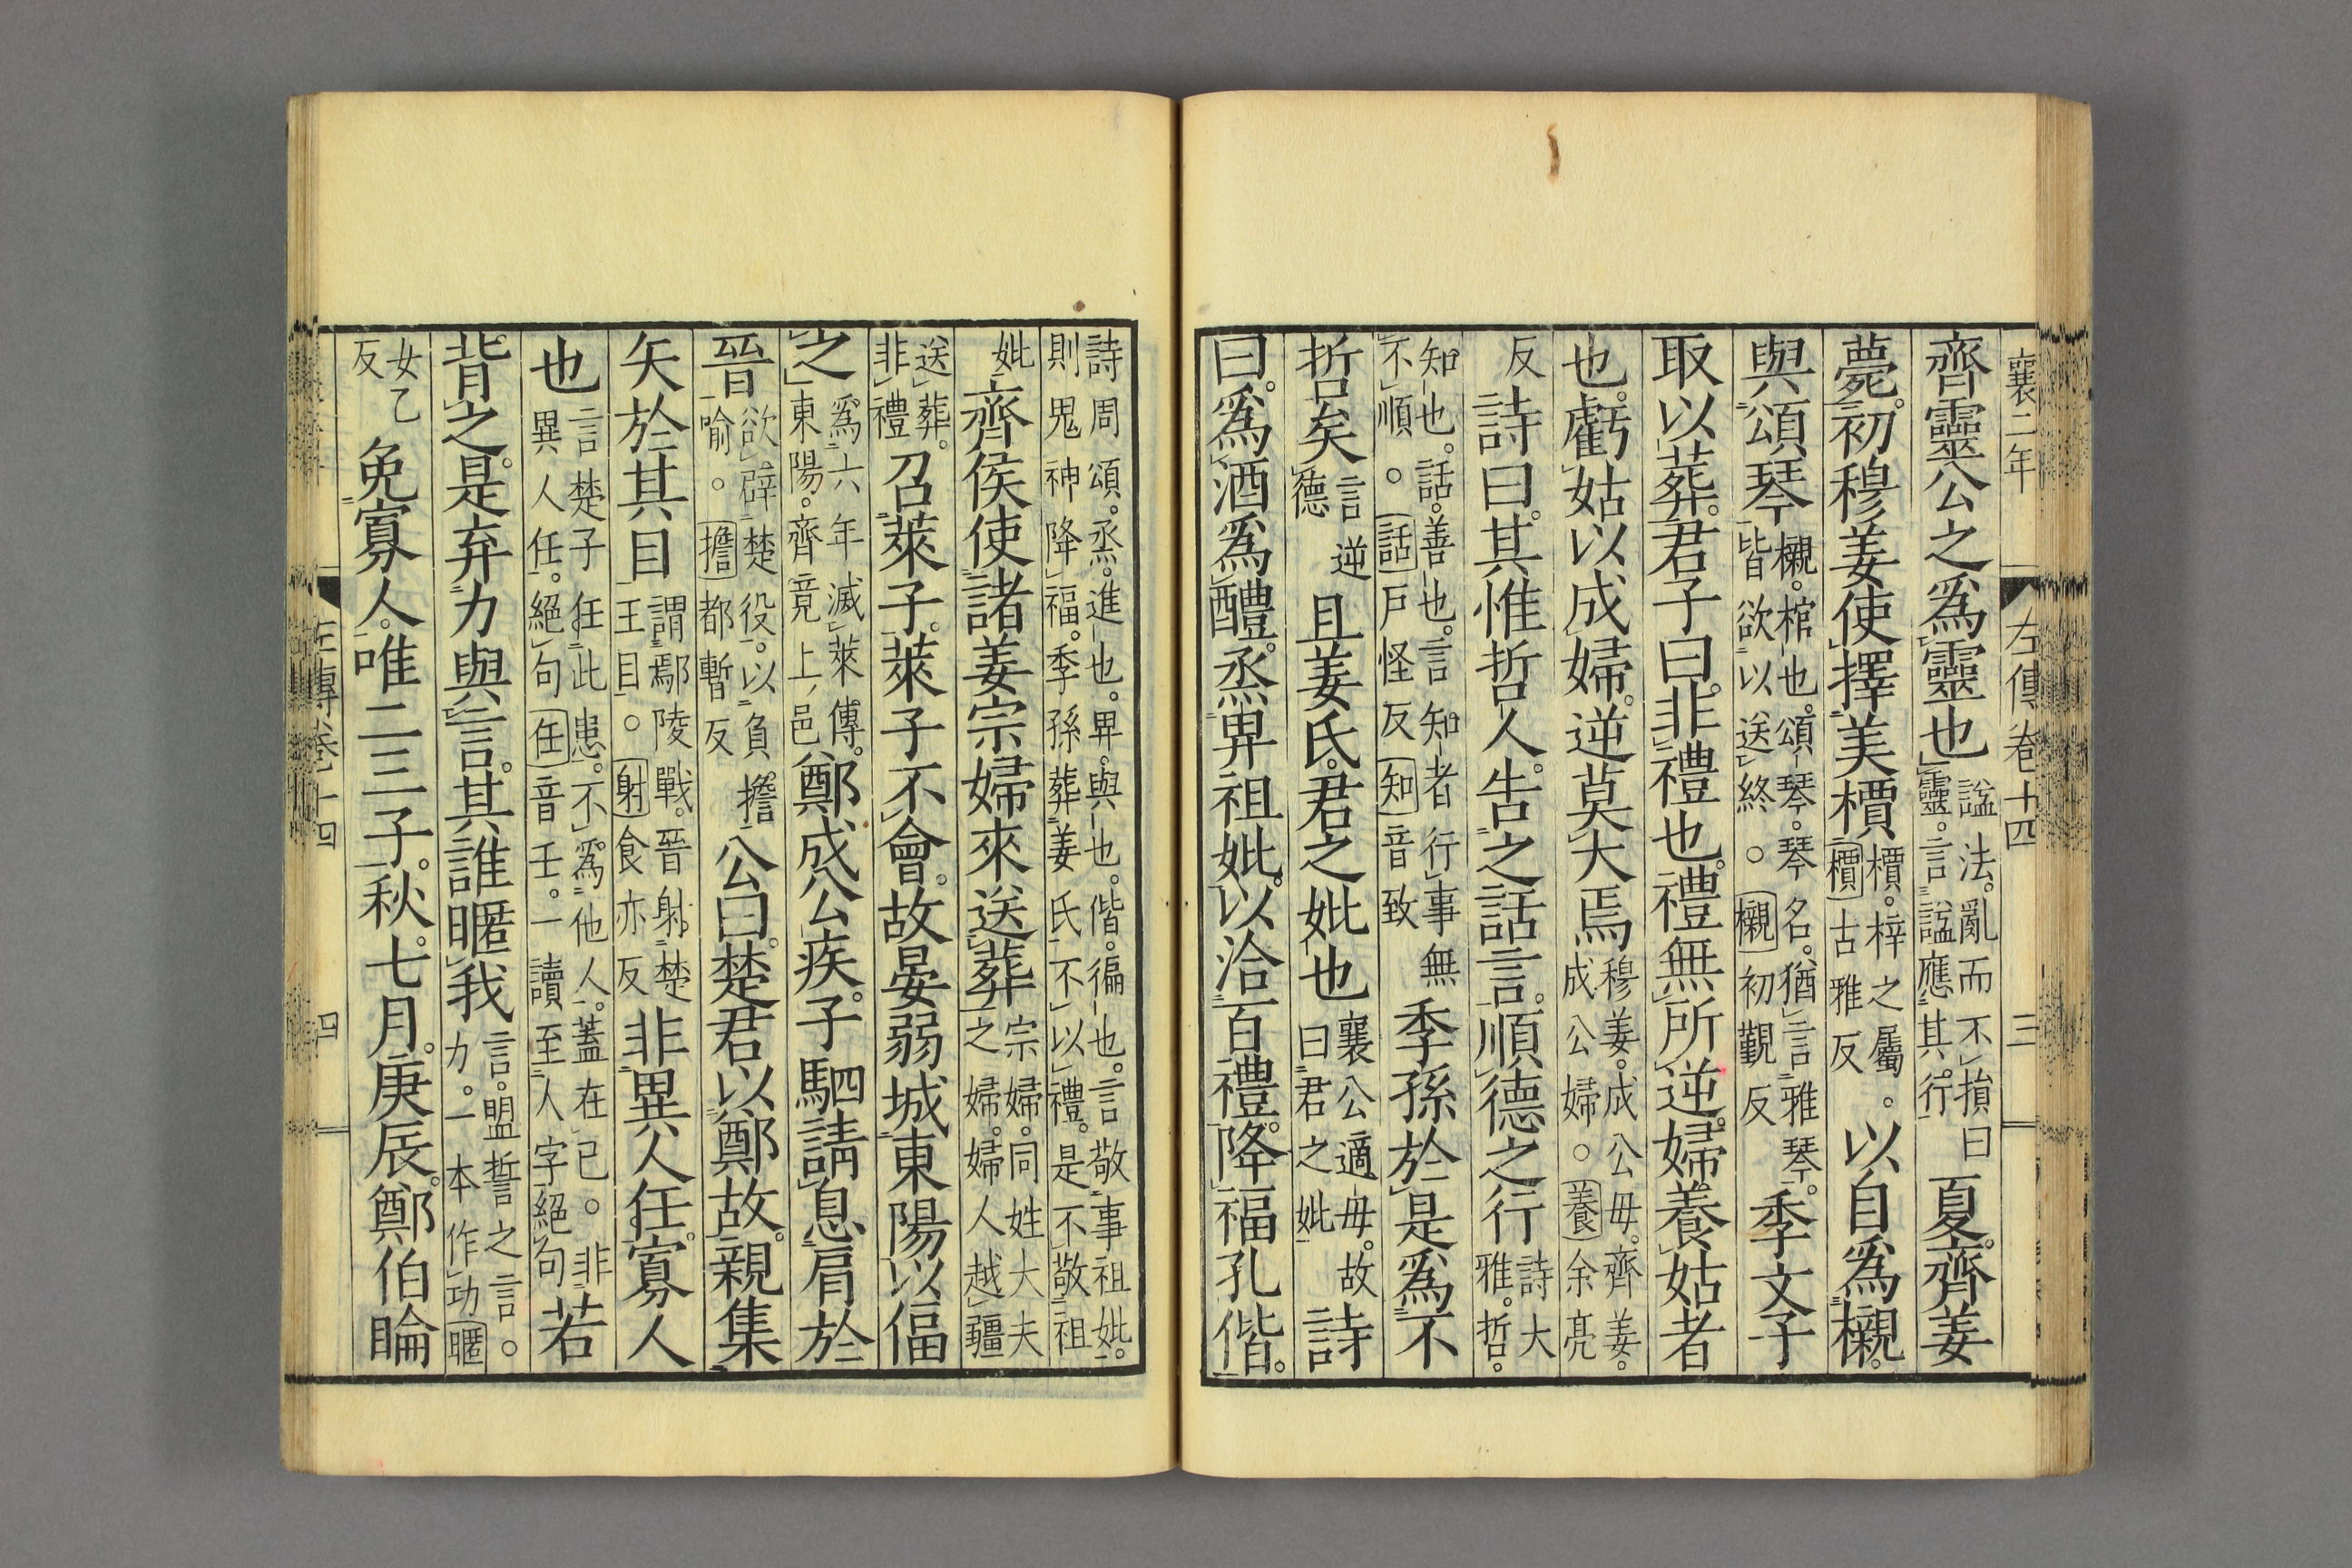 襄二年　左傳卷十四　三
齊靈公之爲靈也謚法。亂而不損曰靈。言謚應其行夏。齊姜
薨。初穆姜使擇美檟檟。梓之屬。檟古雅反以自爲櫬。
與頌琴櫬。棺也。頌琴。琴名。猶言雅琴。皆欲以送終。櫬初覲反季文子
取以葬。君子曰。非禮也。禮無所逆。婦養姑者
也。虧姑以成婦。逆莫大焉穆姜。成公母。齊姜。成公婦。養余亮
反詩曰。其惟哲人。告之話言。順德之行詩大雅。哲。
知也。話。善也。言知者行事無不順。話戶怪反知音致季孫於是爲不
哲矣言逆德且姜氏。君之妣也襄公適母。故曰君之妣詩
曰。爲酒爲醴。烝畀祖妣。以洽百禮。降福孔偕。
詩周頌。烝。進也。畀。與也。偕。徧也。言敬事祖妣。則鬼神降福。季孫葬姜氏不以禮。是不敬祖
妣齊侯使諸姜宗婦來送葬宗婦。同姓大夫之婦。婦人越疆
送葬。非禮召萊子。萊子不會。故晏弱城東陽以偪
之爲六年滅萊傳。東陽。齊竟上邑鄭成公疾。子駟請息肩於
晉欲辟楚役。以負擔喻。擔都暫反公曰。楚君以鄭故。親集
矢於其目謂鄢陵戰。晉射楚王目。射食亦反非異人任。寡人
也言楚子任此患。不爲他人。蓋在己。非異人任。絕句任音壬。一讀至人字絕句若
背之。是弃力與言。其誰暱我言。盟誓之言。力。一本作功暱
女乙反免寡人。唯二三子。秋。七月。庚辰。鄭伯睔
左傳卷十四　四